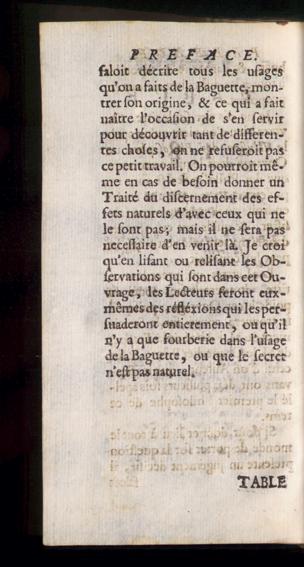 PREFACE.
faloit décrire tous les usages
qu'on a faits de la Baguette, mon-
trer son origine, & ce qui a fait
naître l'occasion de s'en servir
pour découvrir tant de differen-
tes choses, on ne refuseroit pas
ce petit travail. On pourroit mê-
me en cas de besoin donner un
Traité du discernement des ef-
fets naturels d'avec ceux qui ne
le sont pas; mais il ne sera pas
necessaire d'en venir là. Je croi
qu'en lisant ou relisant les Ob-
servations qui sont dans cet Ou-
vrage, les Lecteurs feront eux-
mêmes des réfléxions qui les per-
suaderont entierement, ou qu'il
n'y a que fourberie dans l'usage
de la Baguette, ou que le secret
n'est pas naturel.
TABLE